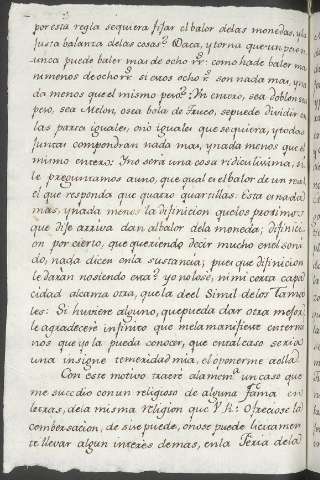 por esta regla se quiera fijar el balor de las monedas, y la
justa balanza de las cosas? Daca, y torna que un peso n
unca puede baler mas de ocho rr.ˢ como ha de baler ma
ni menos de ocho rr.ˢ si en los ocho r.ˢ son nada mas, y na
da menos que el mismo peso? Un entero, sea doblon sea
peso, sea Melon, o sea bola de Truco, se puede dividir en
las partes iguales, o no iguales que se quiera, y todas
juntas compondran nada mas, y nada menos que el
mismo entero: Y no será una cosa ridiculissima, si
le preguntamos a uno, que qual es el balor de un real,
el que responda que quatro quartillas: Esta es nada
mas, y nada menos la difinicion que los proximos
que dije arriva dan al balor de la moneda; difinici
on por cierto, que queriendo decir mucho en el soni
do, nada dicen en la sustancia; pues que difinicion
le daran no siendo esta? yo no lo sè, ni mi corta capa
cidad alcanza otra, que la de el Simil de los Tamo
les: Si huviere alguno, que pueda dar otra mejor
le agradeceré infinito que me la manifieste en termi
nos que yo la pueda conocer, que en tal caso seria
una insigne temeridad mia, el oponerme a ella.
Con este motivo traeré a la mem.ᵃ un caso que
me sucedio con un religioso de alguna fama en
letras, de la misma religion que V. R.: Ofreciose la
combersacion, de si se puede, o no se puede licitamente
llevar algun interès demas, en la Feria de la